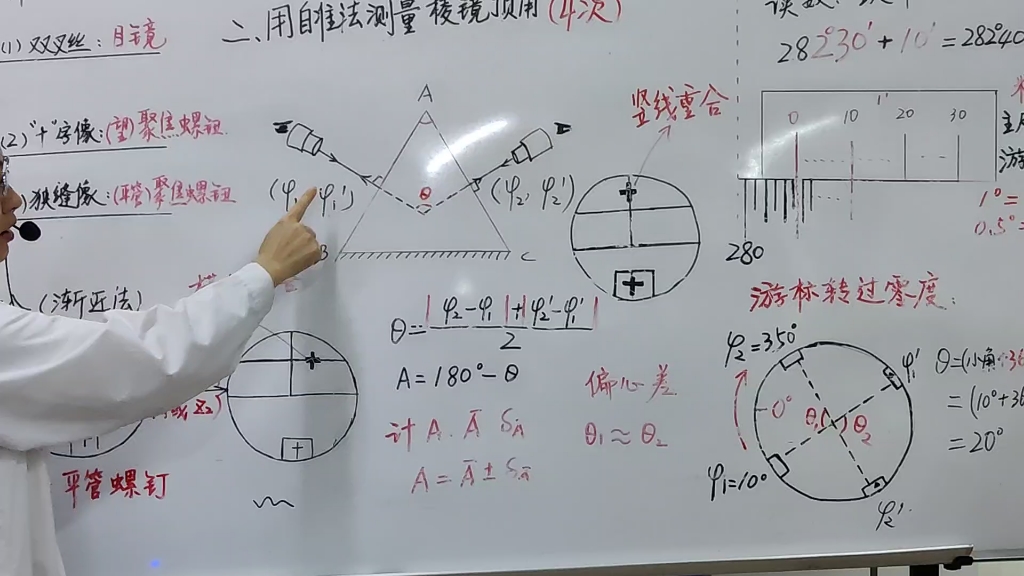 二、用自准法测量棱镜顶角(4次)
(1) 双叉丝：目镜
(2)"十"字像：(望)聚焦螺钮
狭缝像：(平管)聚焦螺钮
(渐近法)
平管螺钉
A
θ
B
C
(φ₁, φ₁′)
(φ₂, φ₂′)
竖线重合
θ = |φ₂-φ₁|+|φ₂′-φ₁′| / 2
A = 180° - θ
计 A. Ā S_Ā
A = Ā ± S_Ā
偏心差
θ₁ ≈ θ₂
282°30′ + 10′ = 282°40
0 1′ 10 20 30
280
1° =
0.5° =
游标转过零度：
φ₂=350°
φ₁′
0°
θ₁ θ₂
φ₁=10°
φ₂′
θ=(小角+36
= (10°+36
= 20°